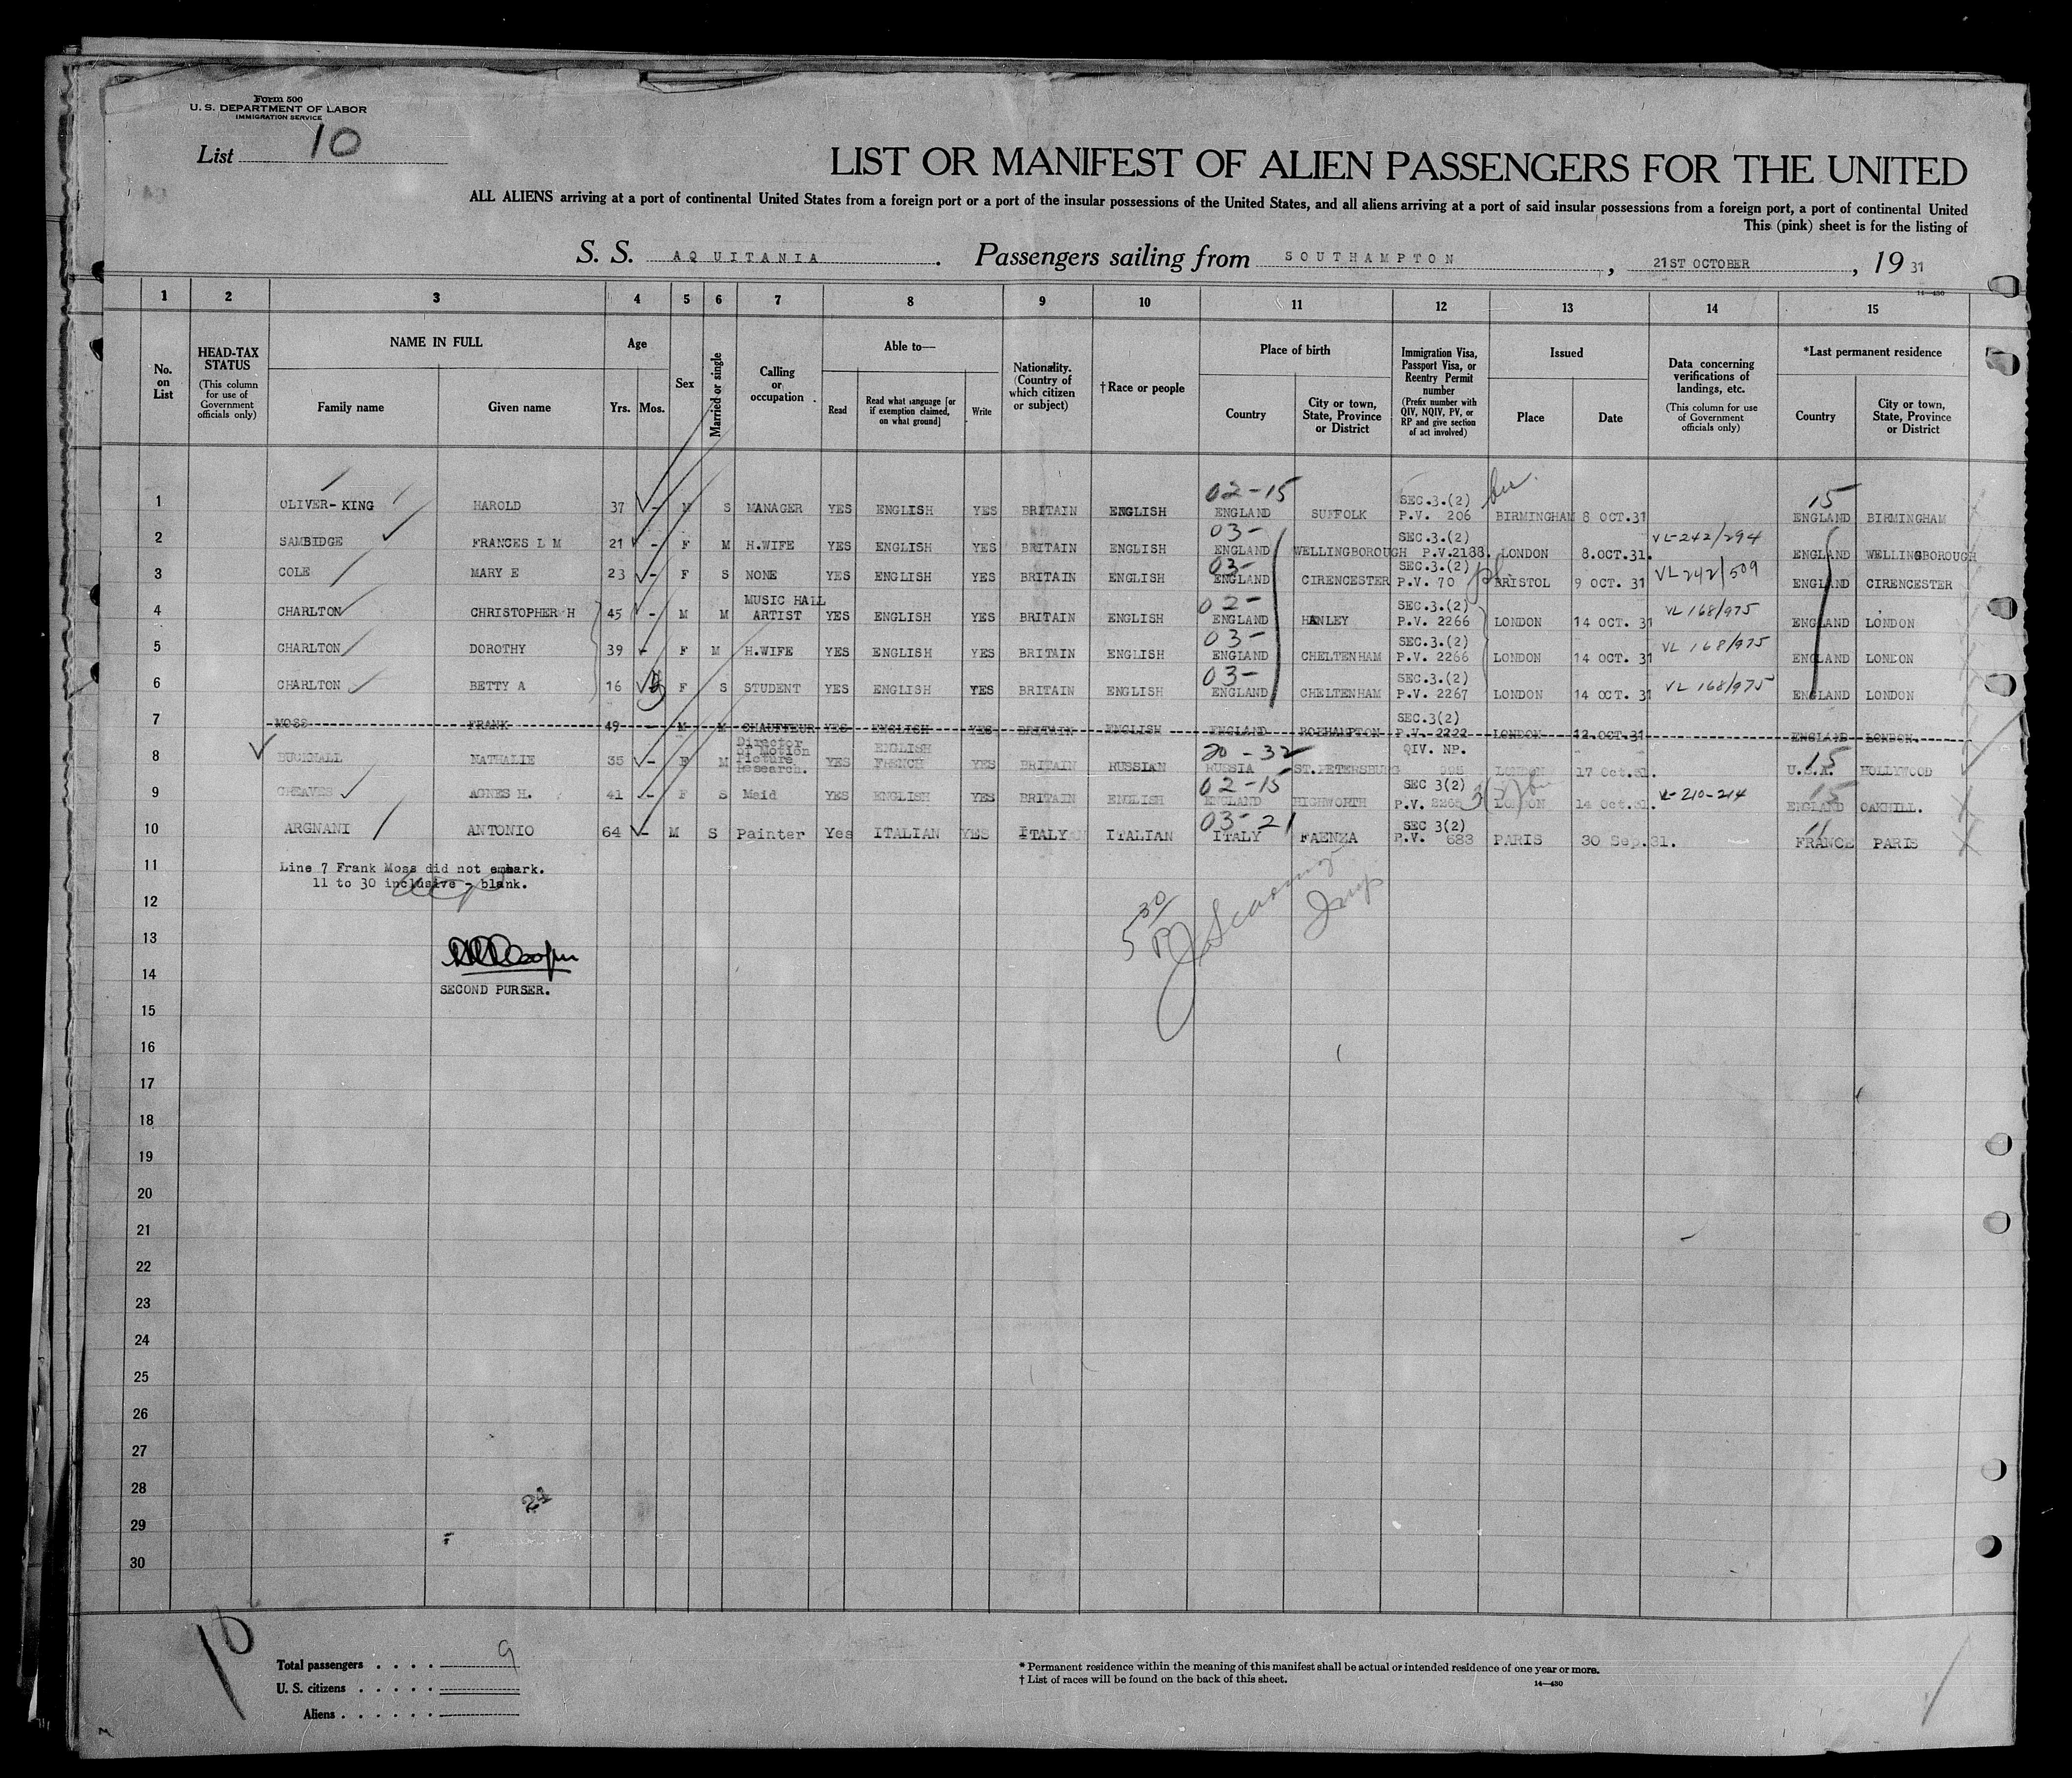 Form 500
U. S. DEPARTMENT OF LABOR
IMMIGRATION SERVICE
List 10
LIST OR MANIFEST OF ALIEN PASSENGERS FOR THE UNITED
ALL ALIENS arriving at a port of continental United States from a foreign port or a port of the insular possessions of the United States, and all aliens arriving at a port of said insular possessions from a foreign port, a port of continental United
This (pink) sheet is for the listing of
S. S. AQUITANIA . Passengers sailing from SOUTHAMPTON , 21ST OCTOBER , 19 31
14—430
1 2 3 4 5 6 7 8 9 10 11 12 13 14 15
No. on List
HEAD-TAX STATUS (This column for use of Government officials only)
NAME IN FULL
Family name Given name
Age
Yrs. Mos.
Sex
Married or single
Calling or occupation
Able to—
Read Read what language [or if exemption claimed, on what ground] Write
Nationality. (Country of which citizen or subject)
† Race or people
Place of birth
Country City or town, State, Province or District
Immigration Visa, Passport Visa, or Reentry Permit number (Prefix number with QIV, NQIV, PV, or RP and give section of act involved)
Issued
Place Date
Data concerning verifications of landings, etc. (This column for use of Government officials only)
*Last permanent residence
Country City or town, State, Province or District
02-15 SEC.3.(2) 15
1 OLIVER-KING HAROLD 37 - M S MANAGER YES ENGLISH YES BRITAIN ENGLISH ENGLAND SUFFOLK P.V. 206 BIRMINGHAM 8 OCT.31 ENGLAND BIRMINGHAM
03- SEC.3.(2) VL-242/294
2 SAMBIDGE FRANCES L M 21 - F M H.WIFE YES ENGLISH YES BRITAIN ENGLISH ENGLAND WELLINGBOROUGH P.V.2188. LONDON 8.OCT.31. ENGLAND WELLINGBOROUGH
03- SEC.3.(2) VL242/509
3 COLE MARY E 23 - F S NONE YES ENGLISH YES BRITAIN ENGLISH ENGLAND CIRENCESTER P.V. 70 BRISTOL 9 OCT. 31 ENGLAND CIRENCESTER
MUSIC HALL 02- SEC.3.(2) VL 168/975
4 CHARLTON CHRISTOPHER H 45 - M M ARTIST YES ENGLISH YES BRITAIN ENGLISH ENGLAND HANLEY P.V. 2266 LONDON 14 OCT. 31 ENGLAND LONDON
03- SEC.3.(2) VL 168/975
5 CHARLTON DOROTHY 39 - F M H.WIFE YES ENGLISH YES BRITAIN ENGLISH ENGLAND CHELTENHAM P.V. 2266 LONDON 14 OCT. 31 ENGLAND LONDON
03- SEC.3.(2) VL 168/975
6 CHARLTON BETTY A 16 F S STUDENT YES ENGLISH YES BRITAIN ENGLISH ENGLAND CHELTENHAM P.V. 2267 LONDON 14 OCT. 31 ENGLAND LONDON
SEC.3(2)
7 MOSS FRANK 49 - M M CHAUFFEUR YES ENGLISH YES BRITAIN ENGLISH ENGLAND ROEHAMPTON P.V. 2222 LONDON 12.OCT.31 ENGLAND LONDON.
Director of Motion Picture Research. ENGLISH 20-32 QIV. NP. 15
8 BUCKNALL NATHALIE 35 - F M YES FRENCH YES BRITAIN RUSSIAN RUSSIA ST.PETERSBURG LONDON 17 Oct.31. U.S.A. HOLLYWOOD
02-15 SEC 3(2) VL-210-214 15
9 GREAVES AGNES H. 41 - F S Maid YES ENGLISH YES BRITAIN ENGLISH ENGLAND HIGHWORTH P.V. LONDON 14 Oct.31. ENGLAND OAKHILL.
03-21 SEC 3(2) 11
10 ARGNANI ANTONIO 64 - M S Painter Yes ITALIAN YES ITALY ITALIAN ITALY FAENZA P.V. 683 PARIS 30 Sep.31. FRANCE PARIS
11 Line 7 Frank Moss did not embark.
11 to 30 inclusive - blank.
12
5 30/
13
14
SECOND PURSER.
15
16
17
18
19
20
21
22
23
24
25
26
27
28
24
29
30
10
Total passengers . . . . 9
U. S. citizens . . . . .
Aliens . . . . . .
* Permanent residence within the meaning of this manifest shall be actual or intended residence of one year or more.
† List of races will be found on the back of this sheet.
14—430